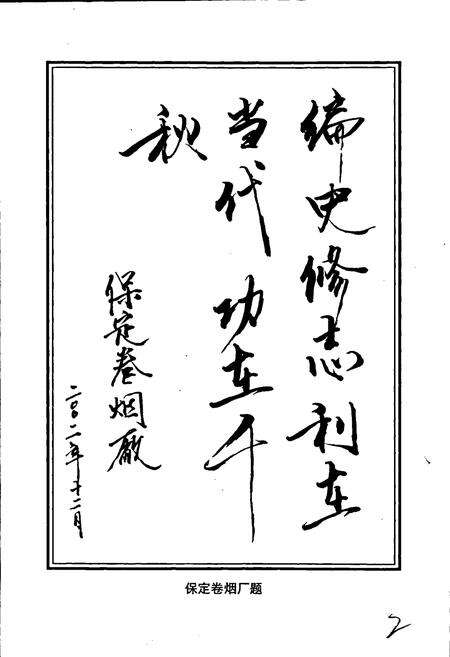 编史修志利在
当代 功在千
秋
保定卷烟厂
二〇〇二年十二月
保定卷烟厂题
2